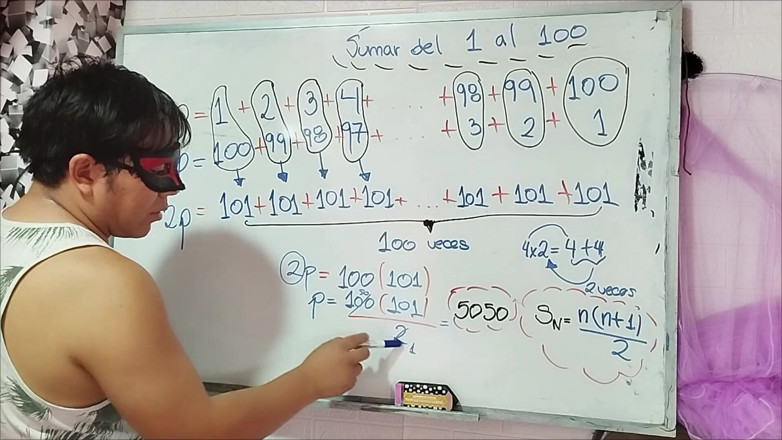 Sumar del 1 al 100
= 1 + 2 + 3 + 4 + ..... + 98 + 99 + 100
= 100 + 99 + 98 + 97 + ..... + 3 + 2 + 1
2p = 101 + 101 + 101 + 101 + ... + 101 + 101 + 101
100 veces
4x2 = 4 + 4
2 veces
2p = 100 (101)
p = 100 (101) / 2 = 5050
50
1
S_N = n(n+1) / 2